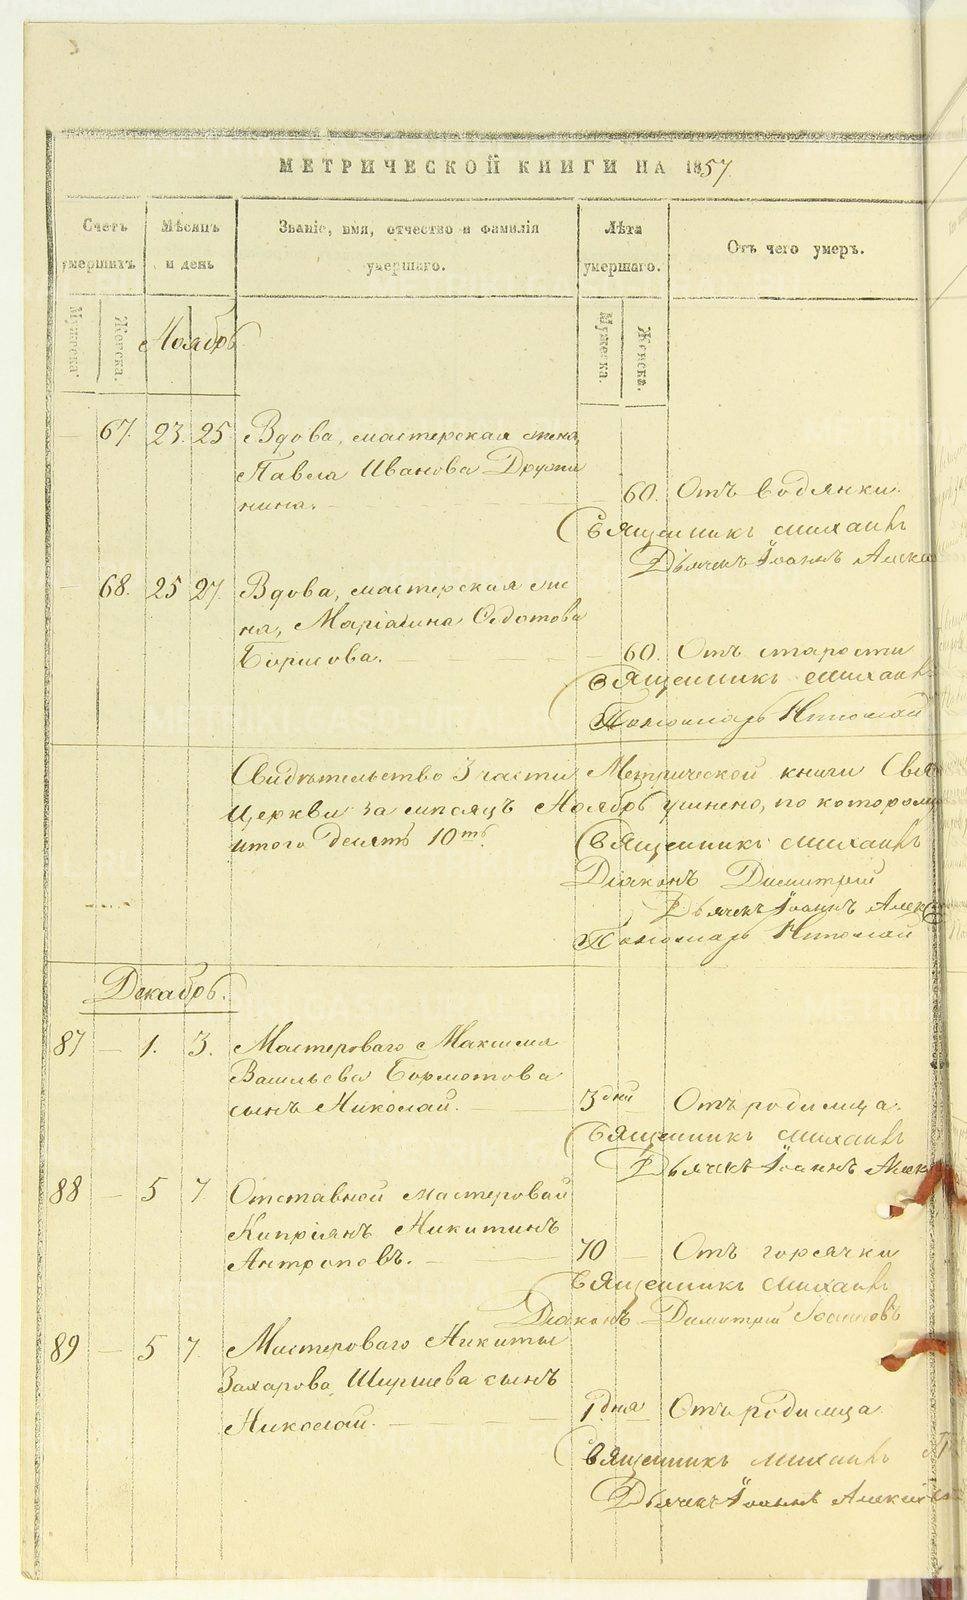 МЕТРИЧЕСКОЙ КНИГИ НА 1857.
Счетъ умершихъ Мѣсяцъ и день Званіе, имя, отчество и фамилія умершаго. Лѣта умершаго. Отъ чего умеръ.
Мужеска. Женска. Мужеска. Женска.
Ноябрь
67. 23. 25 Вдова, мастерская жена,
Павла Иванова Дружи
нина. 60. Отъ водянки.
Священникъ Михаилъ
Дьячекъ Іоаннъ Алекс
68. 25 27. Вдова, мастерская же
на, Маріамна Федотова
Борисова. 60. Отъ старости
Священникъ Михаилъ
Пономарь Николай
Свидѣтельство 3 части Метрической книги Свя
Церкви за мѣсяцъ Ноябрь учинено, по котором
итого десять 10ть.
Священникъ Михаилъ
Діаконъ Димитрій
Дьячекъ Іоаннъ Алекс
Пономарь Николай
Декабрь.
87 1. 3. Мастероваго Максима
Васильева Бормотова
сынъ Николай. 3 дни Отъ родимца.
Священникъ Михаилъ
Дьячекъ Іоаннъ Алек
88 5 7 Отставной мастеровой
Кипріянъ Никитинъ
Антроповъ. 70 Отъ горячки
Священникъ Михаилъ
Діаконъ Димитрій Іоанновъ
89 5 7. Мастероваго Никиты
Захарова Ширшева сынъ
Николай. 1 дня Отъ родимца
Священникъ Михаилъ
Дьячекъ Іоаннъ Алексѣев
METRIKI.GASO-URAL.RU